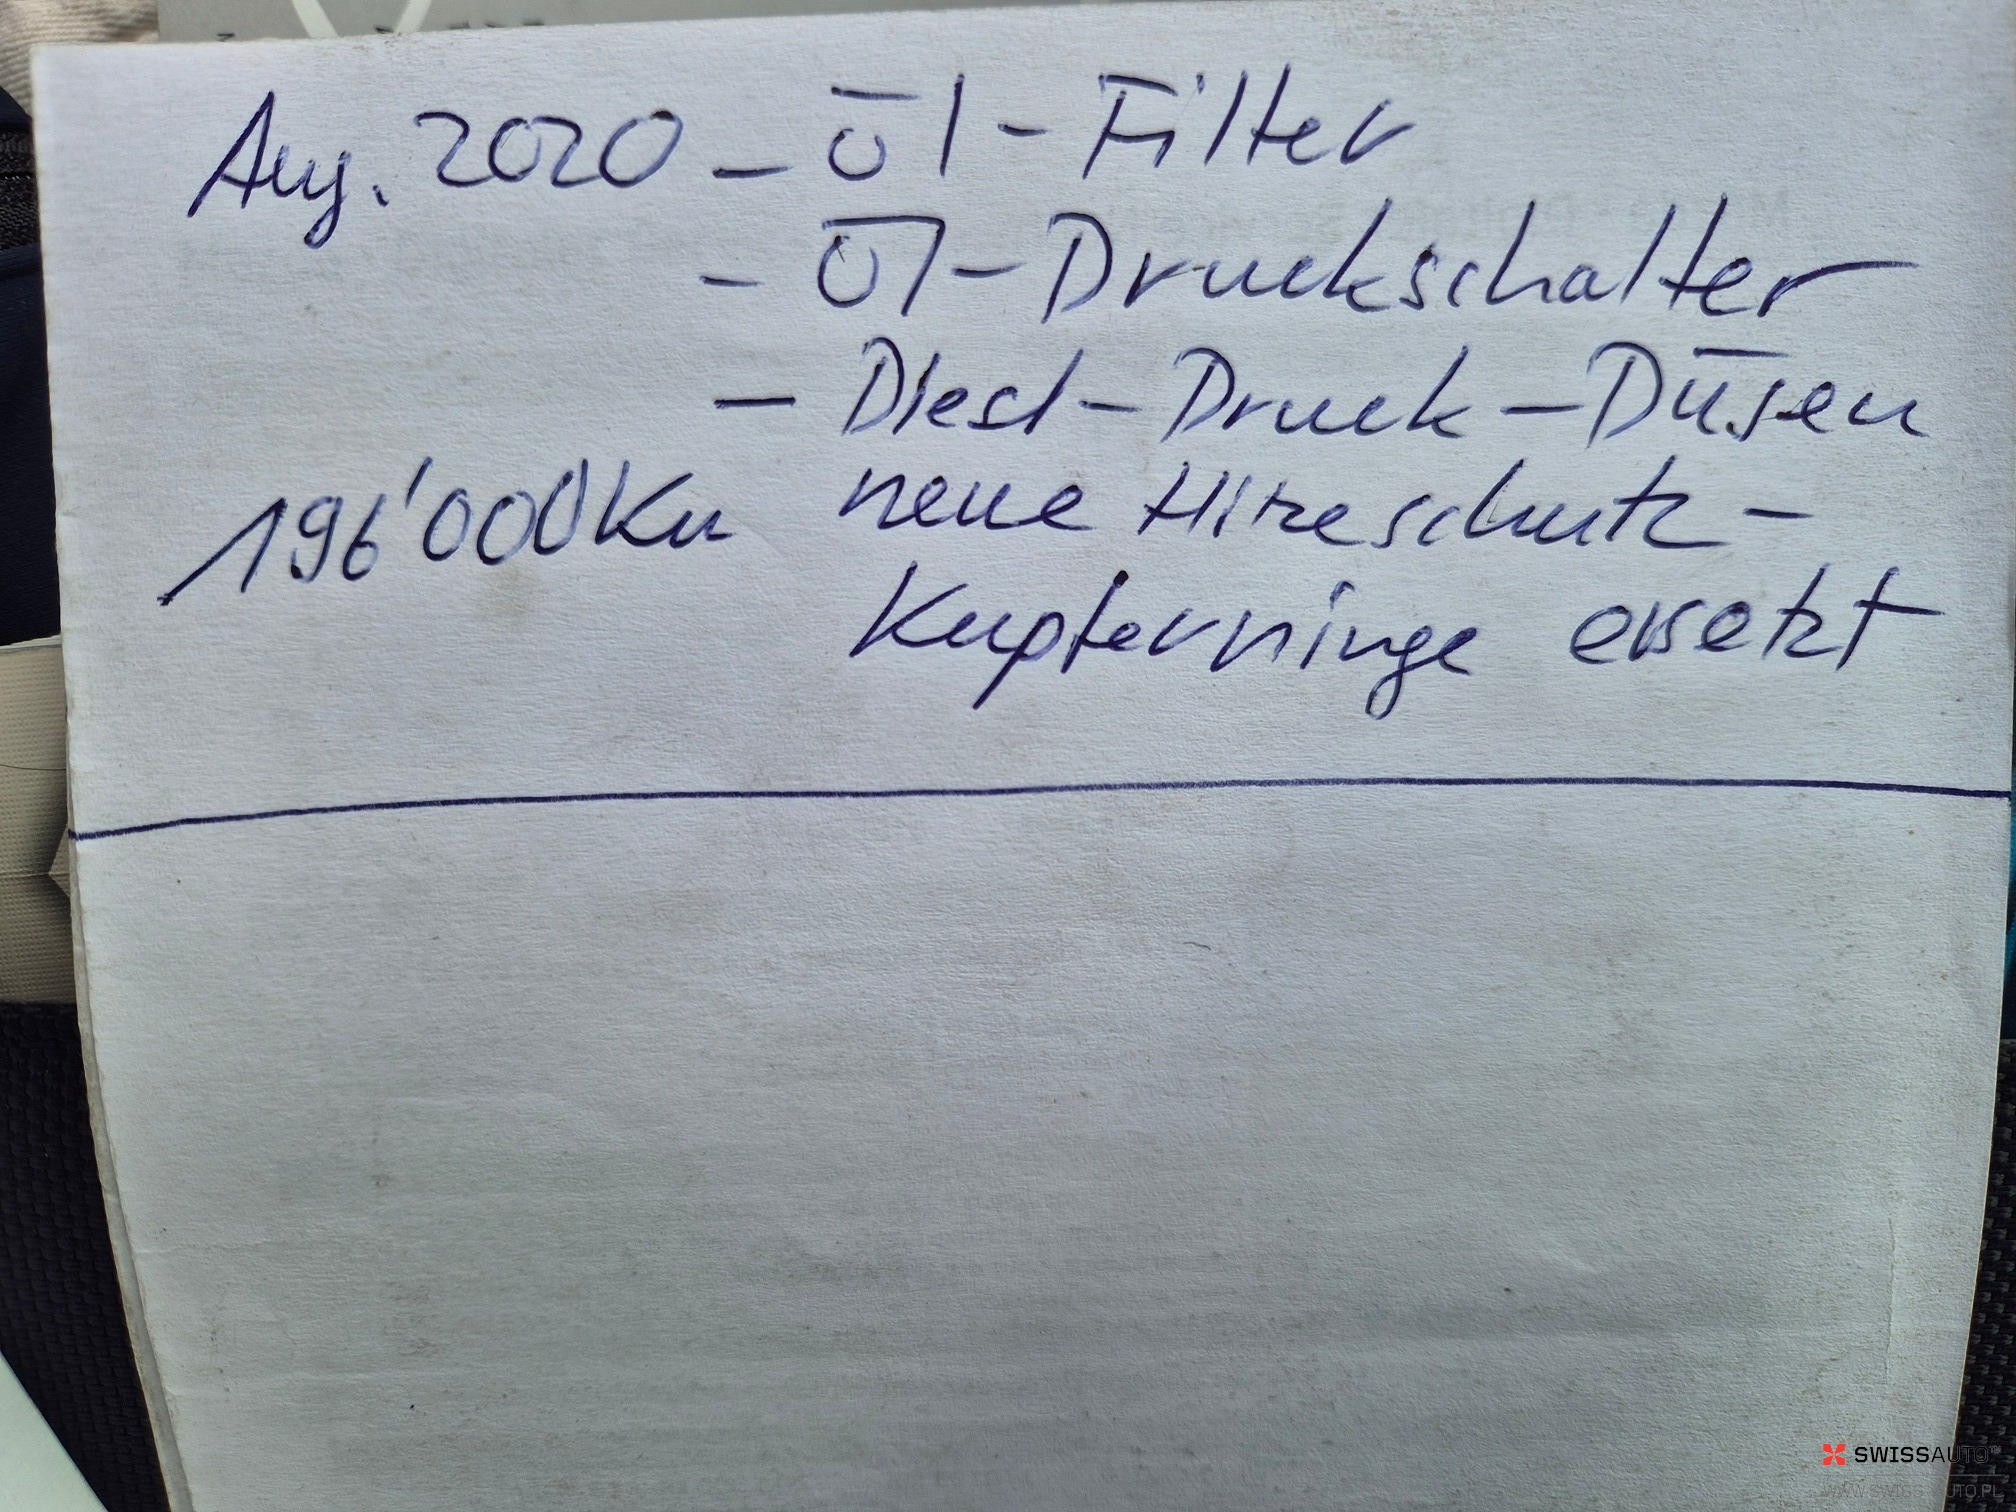 Aug. 2020 - Öl - Filter
- Öl - Druckschalter
- Diesel - Druck - Düsen
196'000 Km neue Hitzeschutz -
Kupferringe ersetzt
SWISSAUTO
WWW.SWISS-AUTO.PL